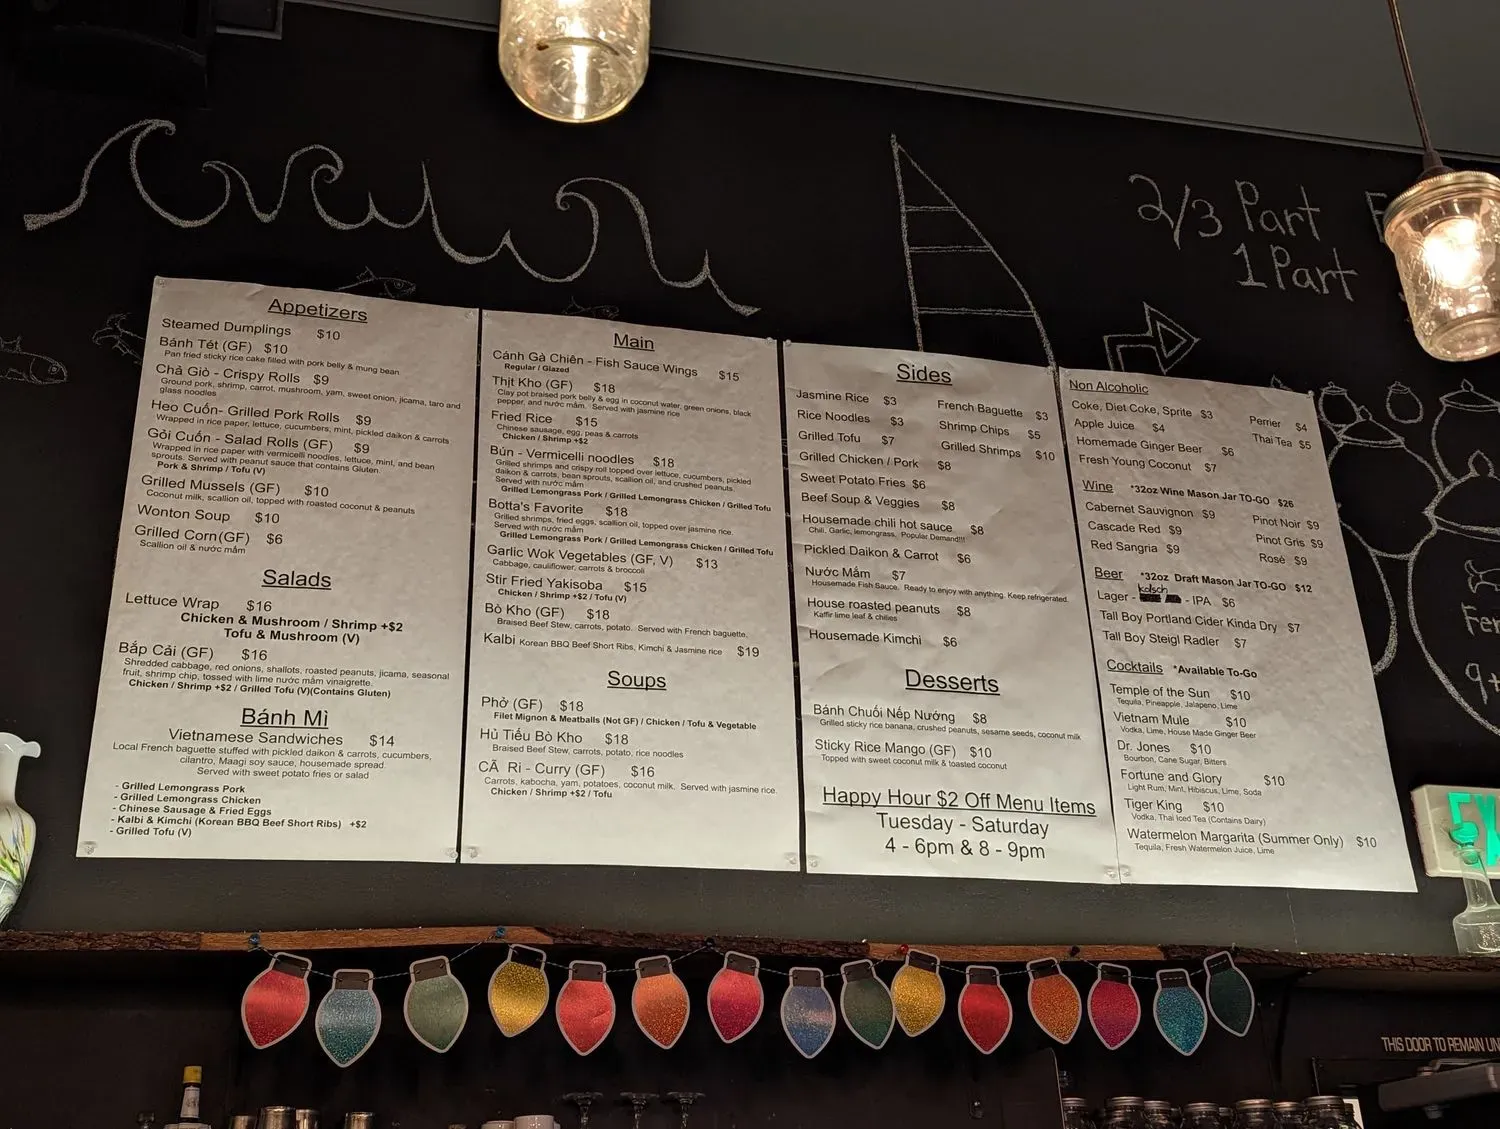 2/3 Part
1 Part
Appetizers
Steamed Dumplings $10
Bánh Tét (GF) $10
Pan fried sticky rice cake filled with pork belly & mung bean
Chả Giò - Crispy Rolls $9
Ground pork, shrimp, carrot, mushroom, yam, sweet onion, jicama, taro and
glass noodles
Heo Cuốn- Grilled Pork Rolls $9
Wrapped in rice paper, lettuce, cucumbers, mint, pickled daikon & carrots
Gỏi Cuốn - Salad Rolls (GF) $9
Wrapped in rice paper with vermicelli noodles, lettuce, mint, and bean
sprouts. Served with peanut sauce that contains Gluten.
Pork & Shrimp / Tofu (V)
Grilled Mussels (GF) $10
Coconut milk, scallion oil, topped with roasted coconut & peanuts
Wonton Soup $10
Grilled Corn(GF) $6
Scallion oil & nước mắm
Salads
Lettuce Wrap $16
Chicken & Mushroom / Shrimp +$2
Tofu & Mushroom (V)
Bắp Cải (GF) $16
Shredded cabbage, red onions, shallots, roasted peanuts, jicama, seasonal
fruit, shrimp chip, tossed with lime nước mắm vinaigrette.
Chicken / Shrimp +$2 / Grilled Tofu (V)(Contains Gluten)
Bánh Mì
Vietnamese Sandwiches $14
Local French baguette stuffed with pickled daikon & carrots, cucumbers,
cilantro, Maagi soy sauce, housemade spread.
Served with sweet potato fries or salad
- Grilled Lemongrass Pork
- Grilled Lemongrass Chicken
- Chinese Sausage & Fried Eggs
- Kalbi & Kimchi (Korean BBQ Beef Short Ribs) +$2
- Grilled Tofu (V)
Main
Cánh Gà Chiên - Fish Sauce Wings $15
Regular / Glazed
Thịt Kho (GF) $18
Clay pot braised pork belly & egg in coconut water, green onions, black
pepper, and nước mắm. Served with jasmine rice
Fried Rice $15
Chinese sausage, egg, peas & carrots
Chicken / Shrimp +$2
Bún - Vermicelli noodles $18
Grilled shrimps and crispy roll topped over lettuce, cucumbers, pickled
daikon & carrots, bean sprouts, scallion oil, and crushed peanuts.
Served with nước mắm
Grilled Lemongrass Pork / Grilled Lemongrass Chicken / Grilled Tofu
Botta's Favorite $18
Grilled shrimps, fried eggs, scallion oil, topped over jasmine rice.
Served with nước mắm
Grilled Lemongrass Pork / Grilled Lemongrass Chicken / Grilled Tofu
Garlic Wok Vegetables (GF, V) $13
Cabbage, cauliflower, carrots & broccoli
Stir Fried Yakisoba $15
Chicken / Shrimp +$2 / Tofu (V)
Bò Kho (GF) $18
Braised Beef Stew, carrots, potato. Served with French baguette.
Kalbi Korean BBQ Beef Short Ribs, Kimchi & Jasmine rice $19
Soups
Phở (GF) $18
Filet Mignon & Meatballs (Not GF) / Chicken / Tofu & Vegetable
Hủ Tiếu Bò Kho $18
Braised Beef Stew, carrots, potato, rice noodles
CÃ Ri - Curry (GF) $16
Carrots, kabocha, yam, potatoes, coconut milk. Served with jasmine rice.
Chicken / Shrimp +$2 / Tofu
Sides
Jasmine Rice $3
French Baguette $3
Rice Noodles $3
Shrimp Chips $5
Grilled Tofu $7
Grilled Shrimps $10
Grilled Chicken / Pork $8
Sweet Potato Fries $6
Beef Soup & Veggies $8
Housemade chili hot sauce $8
Chili, Garlic, lemongrass, Popular Demand!!!
Pickled Daikon & Carrot $6
Nước Mắm $7
Housemade Fish Sauce. Ready to enjoy with anything. Keep refrigerated.
House roasted peanuts $8
Kaffir lime leaf & chilies
Housemade Kimchi $6
Desserts
Bánh Chuối Nếp Nướng $8
Grilled sticky rice banana, crushed peanuts, sesame seeds, coconut milk
Sticky Rice Mango (GF) $10
Topped with sweet coconut milk & toasted coconut
Happy Hour $2 Off Menu Items
Tuesday - Saturday
4 - 6pm & 8 - 9pm
Non Alcoholic
Coke, Diet Coke, Sprite $3
Perrier $4
Apple Juice $4
Thai Tea $5
Homemade Ginger Beer $6
Fresh Young Coconut $7
Wine *32oz Wine Mason Jar TO-GO $26
Cabernet Sauvignon $9
Pinot Noir $9
Cascade Red $9
Pinot Gris $9
Red Sangria $9
Rosé $9
Beer *32oz Draft Mason Jar TO-GO $12
Lager - kolsch - IPA $6
Tall Boy Portland Cider Kinda Dry $7
Tall Boy Steigl Radler $7
Cocktails *Available To-Go
Temple of the Sun $10
Tequila, Pineapple, Jalapeno, Lime
Vietnam Mule $10
Vodka, Lime, House Made Ginger Beer
Dr. Jones $10
Bourbon, Cane Sugar, Bitters
Fortune and Glory $10
Light Rum, Mint, Hibiscus, Lime, Soda
Tiger King $10
Vodka, Thai Iced Tea (Contains Dairy)
Watermelon Margarita (Summer Only) $10
Tequila, Fresh Watermelon Juice, Lime
9+
THIS DOOR TO REMAIN